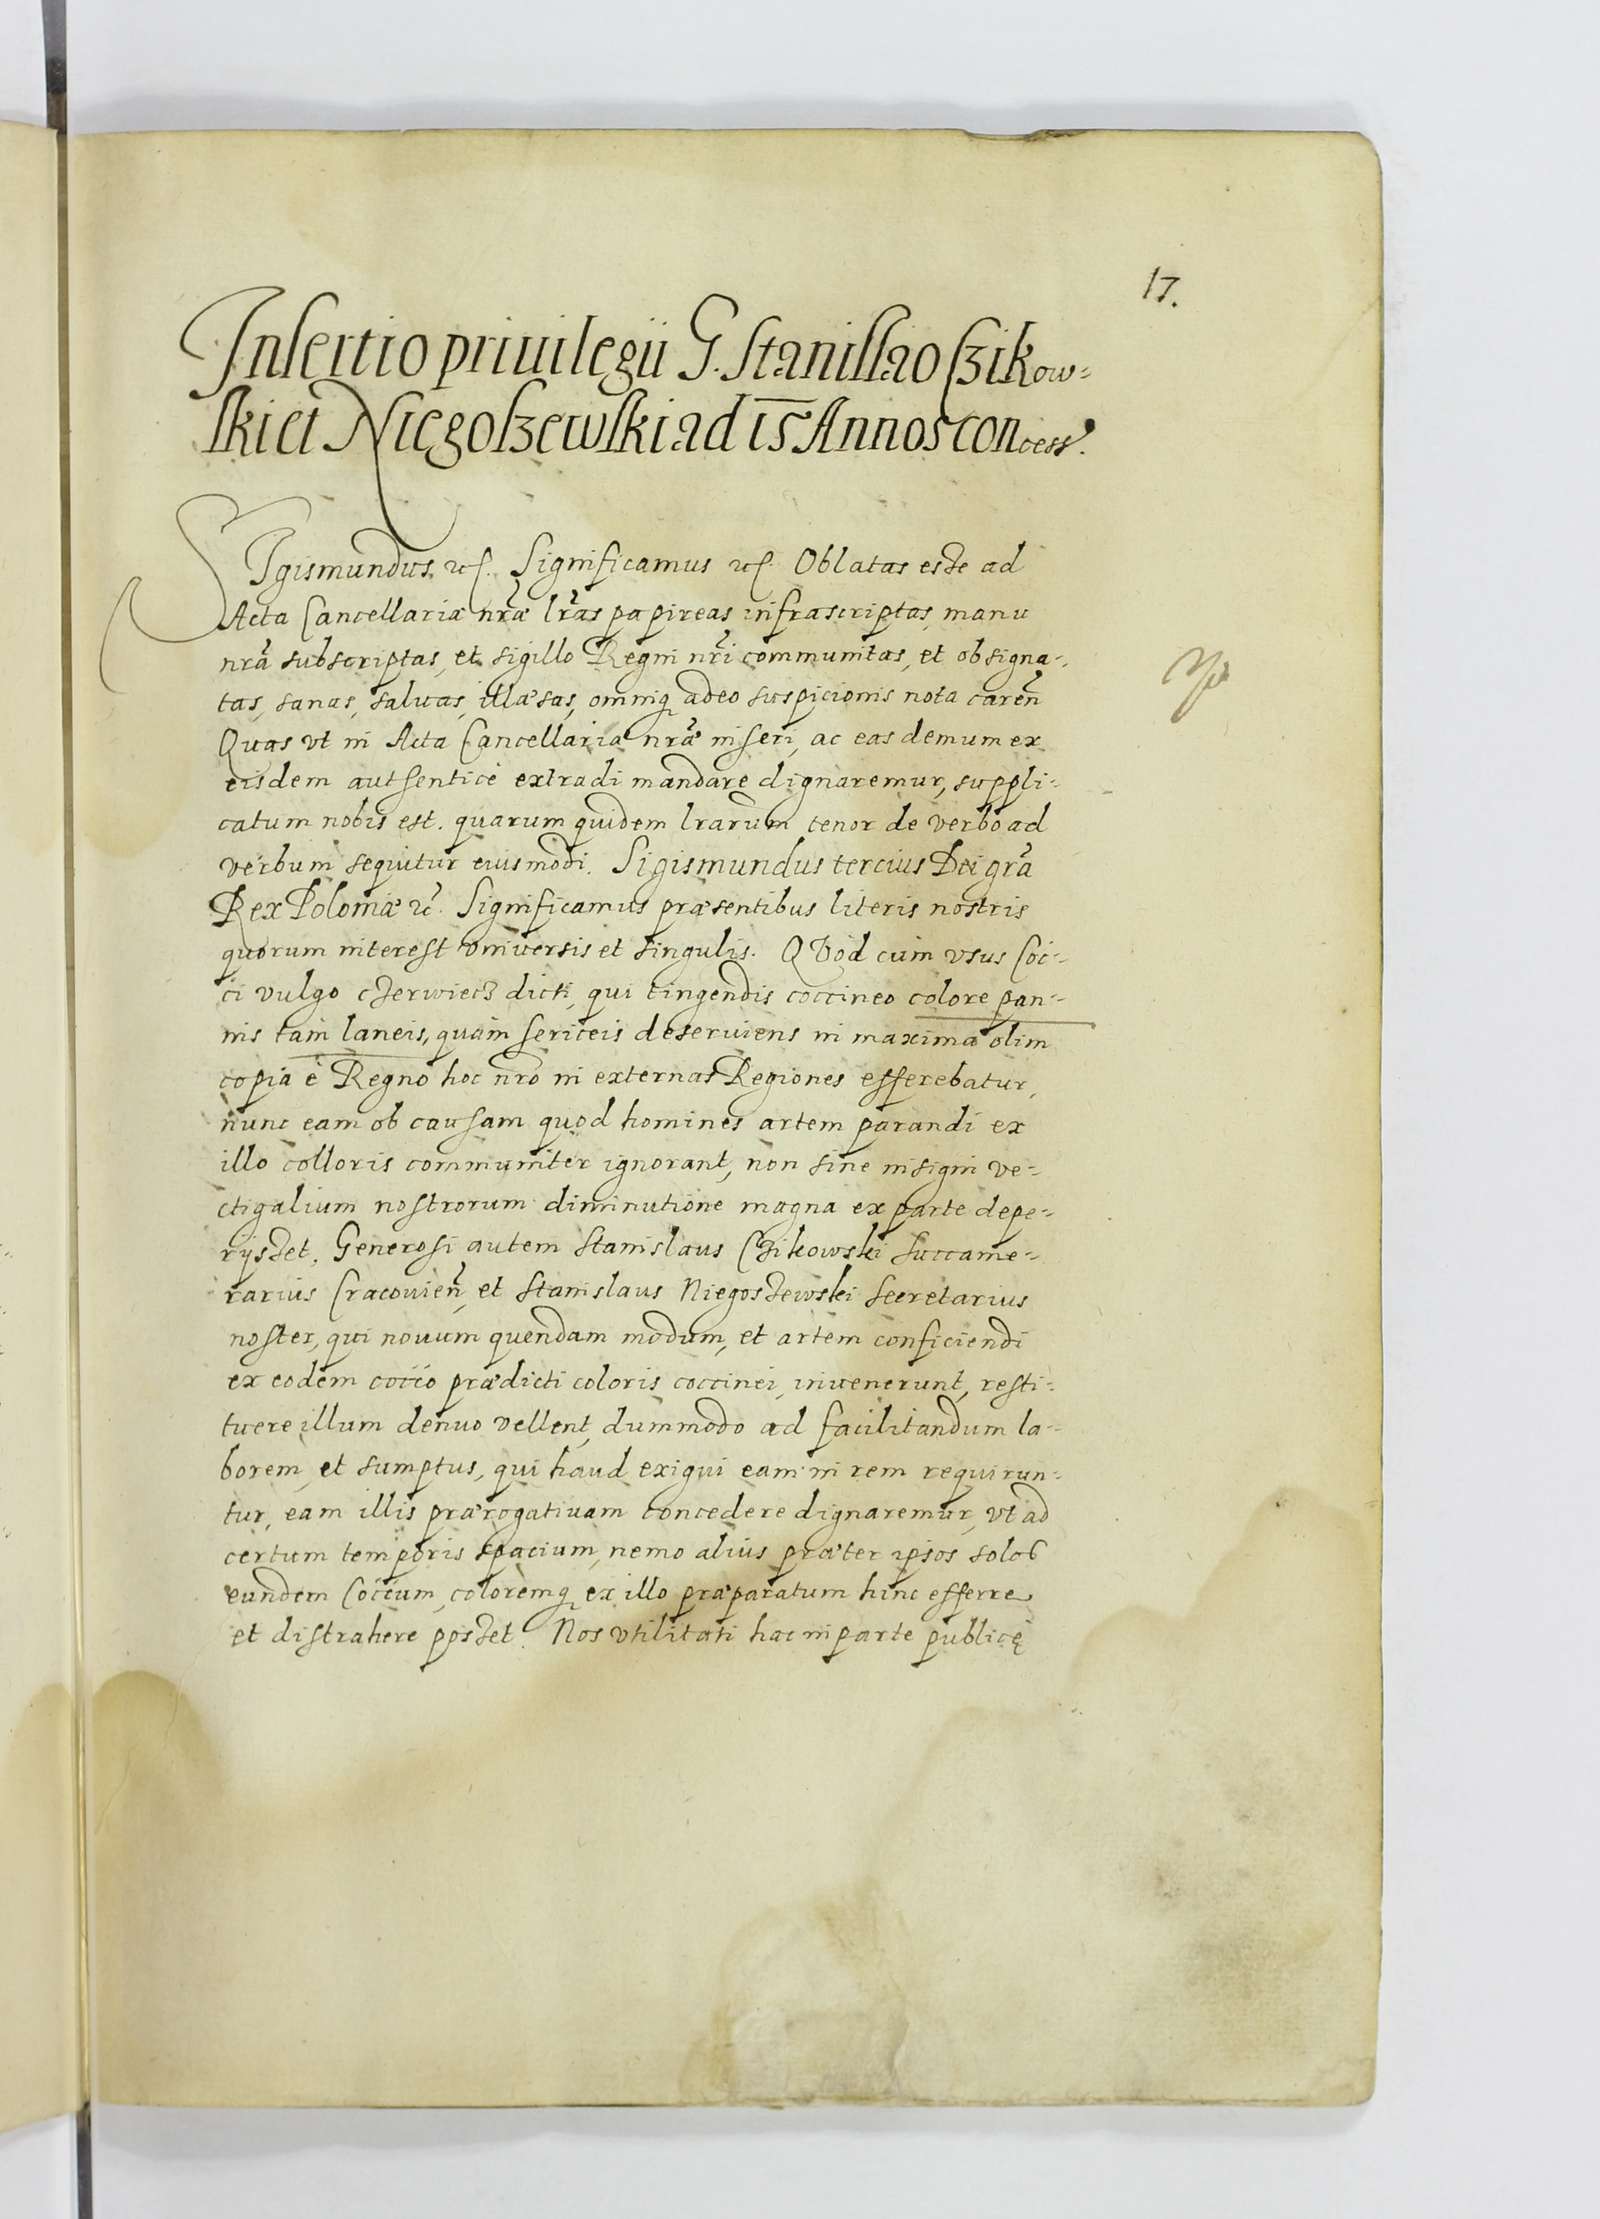 17.
Insertio priuilegii G. Stanislao Czikow-
ski et Niegoszewski ad 15 Annos concess.
Sigismundus etc. Significamus etc. Oblatas esse ad
Acta Cancellariæ nræ lras papireas infrascriptas, manu
nra subscriptas, et sigillo Regni nri communitas, et obsigna-
tas, sanas, saluas, illæsas, omniq adeo suspicionis nota caren
Quas vt in Acta Cancellariæ nræ inseri, ac eas demum ex
eisdem authenticè extradi mandare dignaremur, suppli-
catum nobis est. quarum quidem lrarum tenor de verbo ad
verbum sequitur eiusmodi. Sigismundus tercius Dei gra
Rex Poloniæ etc. Significamus præsentibus literis nostris
quorum interest vniuersis et singulis. QVod cum vsus Coc-
ci vulgo czerwiecz dicti, qui tingendis coccineo colore pan-
nis tam laneis, quam sericeis deseruiens in maxima olim
copia è Regno hoc nro in externas Regiones efferebatur,
nunc eam ob causam quod homines artem parandi ex
illo colloris communiter ignorant, non sine insigni ve-
ctigalium nostrorum diminutione magna ex parte depe-
rijsset. Generosi autem Stanislaus Czikowski Succame-
rarius Cracouien, et Stanislaus Niegoszewski Secretarius
noster, qui nouum quendam modum, et artem conficiendi
ex eodem cocco prædicti coloris coccinei, inuenerunt, resti-
tuere illum denuo vellent, dummodo ad facilitandum la-
borem, et sumptus, qui haud exigui eam in rem requirun-
tur, eam illis prærogatiuam concedere dignaremur, vt ad
certum temporis spacium, nemo alius præter ipsos solos
eundem Coccum, coloremq ex illo præparatum hinc efferre
et distrahere posset. Nos vtilitati hac in parte publicę